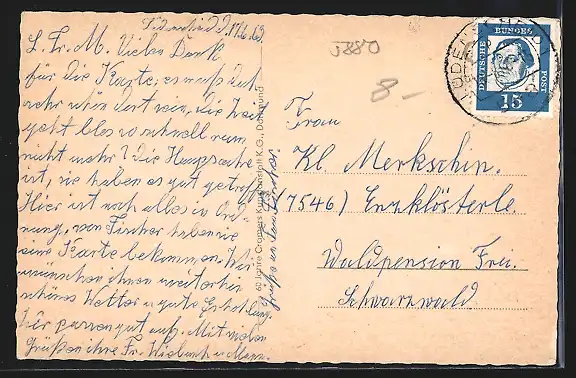 Lüdenscheid, d. 17.6.63.
L. Fr. M. Vielen Dank
für die Karte, es muß dort
sehr schön dort sein, die Zeit
geht bloß so schnell rum,
nicht mehr? Die Hauptsache
ist, sie haben es gut getroffen
Hier ist noch alles in Ord-
nung, von Fischer haben wir
eine Karte bekommen. Wir
wünschen ihnen weiterhin
schönes Wetter u. gute Erholung.
hier passen gut auf. Mit vielen
Grüßen ihre Fr.
60 Jahre Cramers Kunstanstalt K.G., Dortmund
Grüße an
5880
8-
DEUTSCHE
BUNDES
POST
15
Frau
Kl. Merkschin.
(7546) Enzklösterle.
Waldpension Frei.
Schwarzwald